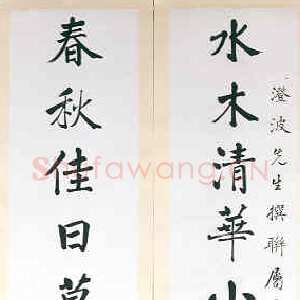 澄波先生撰聯屬
水木清華
春秋佳日
Shufawang.CN